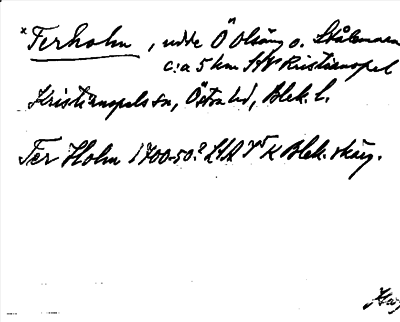 * Terholm, udde Ö Olsäng o. Stålemara
c:a 5 km SSV Kristianopel
Kristianopels sn, Östra hd, Blek. l.
Ter Holm 1700-50? LSA K Blek. skärg.